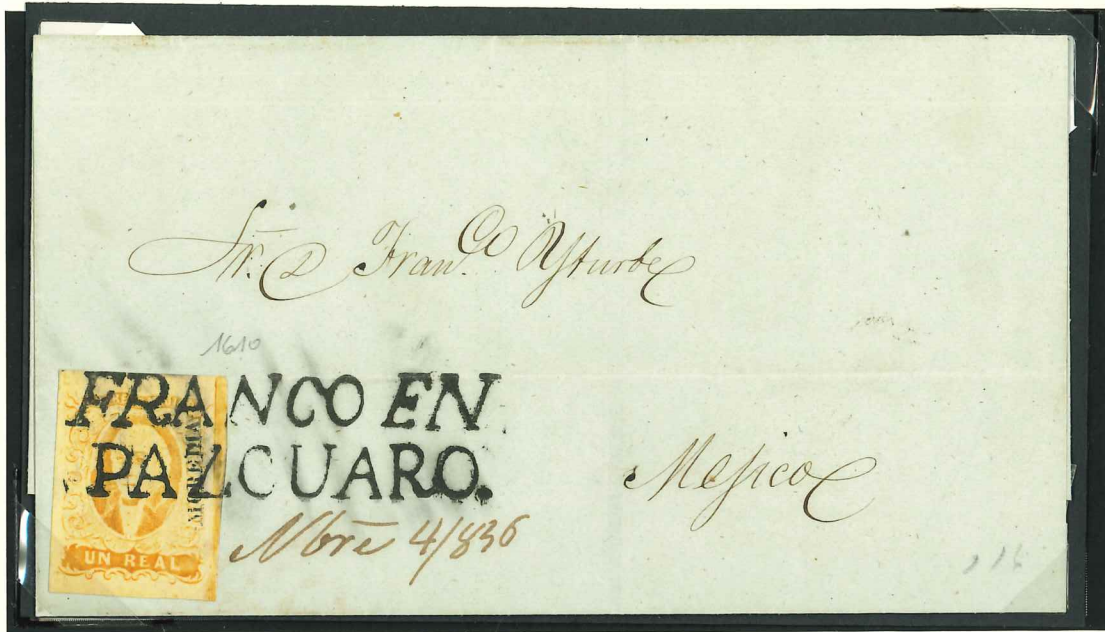 Sr. D Fran.co Yturbe
1610
FRANCO EN
PAZCUARO.
MORELIA
UN REAL
Nbre 4/856
Mejico